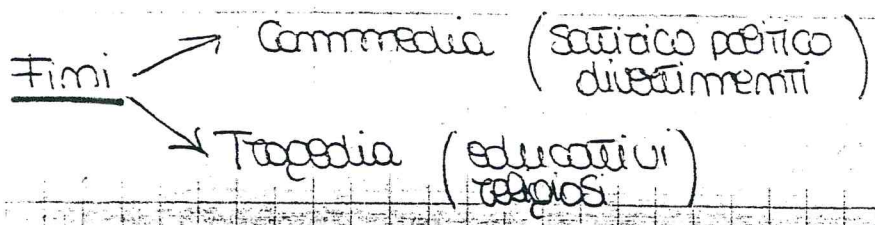 Commedia (satirico politico
divertimenti)
Fini
Tragedia (educativi
religiosi)